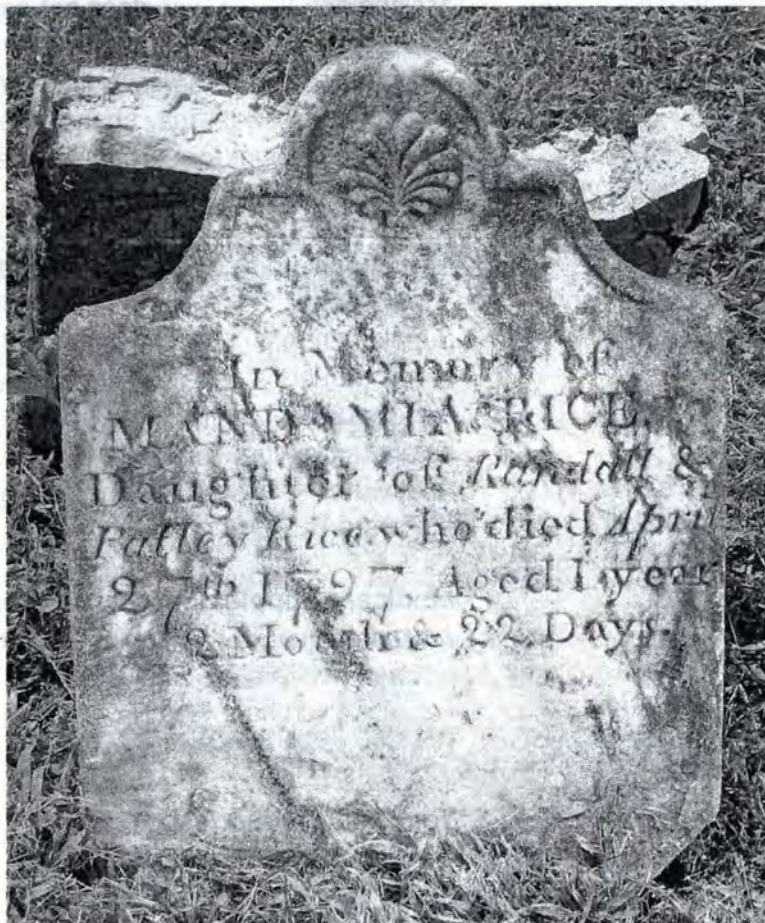 In Memory of
MANDAMIA RICE,
Daughter of Randall &
Patley Rice who died April
27th 1797, Aged 1 year
2 Month & 22 Days.